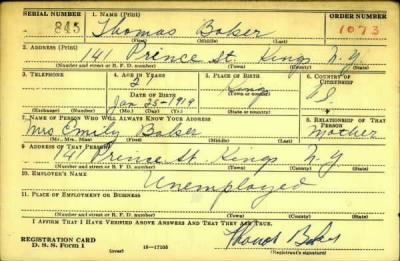 SERIAL NUMBER 1. NAME (Print) ORDER NUMBER
845 Thomas Baker 1073
(First) (Middle) (Last)
2. ADDRESS (Print)
141 Prince St. Kings N.Y
(Number and street or R. F. D. number) (Town) (County) (State)
3. TELEPHONE 4. AGE IN YEARS 5. PLACE OF BIRTH 6. COUNTRY OF CITIZENSHIP
DATE OF BIRTH
Jan 25-1919
(Exchange) (Number) (Mo.) (Day) (Yr.) (State or country)
7. NAME OF PERSON WHO WILL ALWAYS KNOW YOUR ADDRESS 8. RELATIONSHIP OF THAT PERSON
Mrs Emily Baker Mother
(Mr., Mrs., Miss) (First) (Middle) (Last)
9. ADDRESS OF THAT PERSON
141 Prince St Kings N.Y
(Number and street or R. F. D. number) (Town) (County) (State)
10. EMPLOYER'S NAME
Unemployed
11. PLACE OF EMPLOYMENT OR BUSINESS
(Number and street or R. F. D. number) (Town) (County) (State)
I AFFIRM THAT I HAVE VERIFIED ABOVE ANSWERS AND THAT THEY ARE TRUE.
REGISTRATION CARD
D. S. S. Form 1 (over) 16-17105 (Registrant's signature)